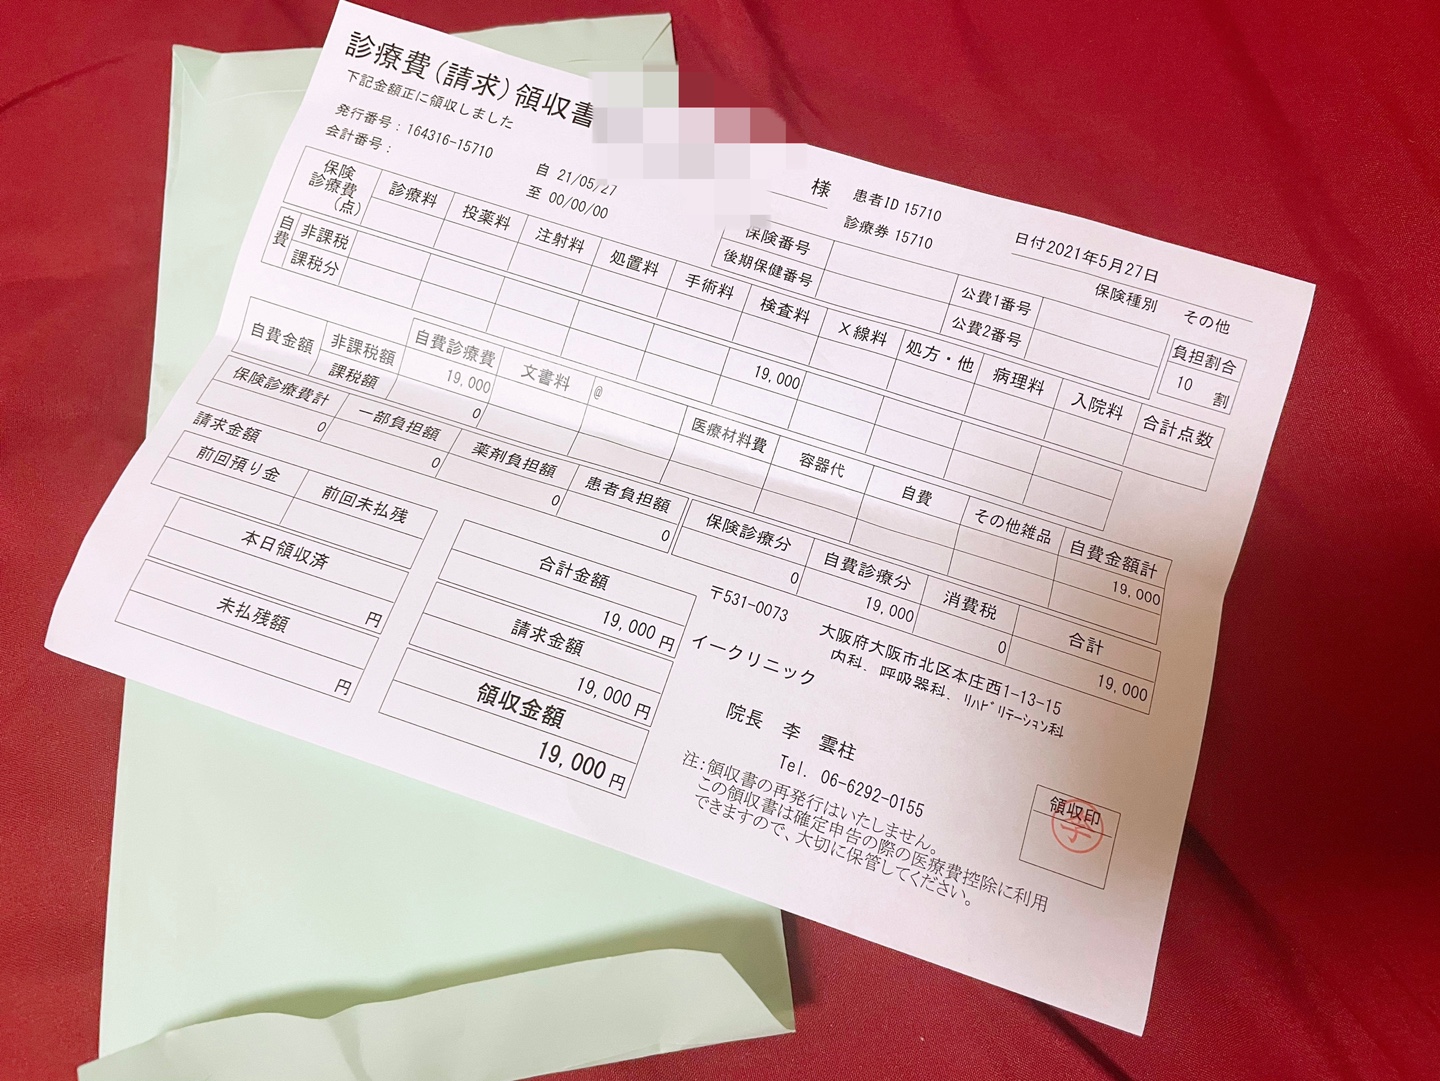 診療費(請求)領収書
下記金額正に領収しました
発行番号：164316-15710
会計番号：
自 21/05/27
至 00/00/00
様
患者ID 15710
診療券 15710
日付2021年5月27日
保険種別 その他
保険番号
後期保健番号
公費1番号
公費2番号
負担割合
10 割
保険診療費(点) 診療料 投薬料 注射料 処置料 手術料 検査料 X線料 処方・他 病理料 入院料 合計点数
自費 非課税 19,000
課税分
自費金額 非課税額 自費診療費 文書料 @ 医療材料費 容器代 自費 その他雑品 自費金額計
19,000 19,000
課税額 0
保険診療費計 一部負担額 薬剤負担額 患者負担額 保険診療分 自費診療分 消費税 合計
0 0 0 0 0 19,000 0 19,000
請求金額
前回預り金 前回未払残
本日領収済
円
未払残額
円
合計金額
19,000円
請求金額
19,000円
領収金額
19,000円
〒531-0073
大阪府大阪市北区本庄西1-13-15
内科．呼吸器科．ﾘﾊﾋﾞﾘﾃｰｼｮﾝ科
イークリニック
院長 李 雲柱
Tel. 06-6292-0155
注：領収書の再発行はいたしません。
この領収書は確定申告の際の医療費控除に利用
できますので、大切に保管してください。
領収印
李